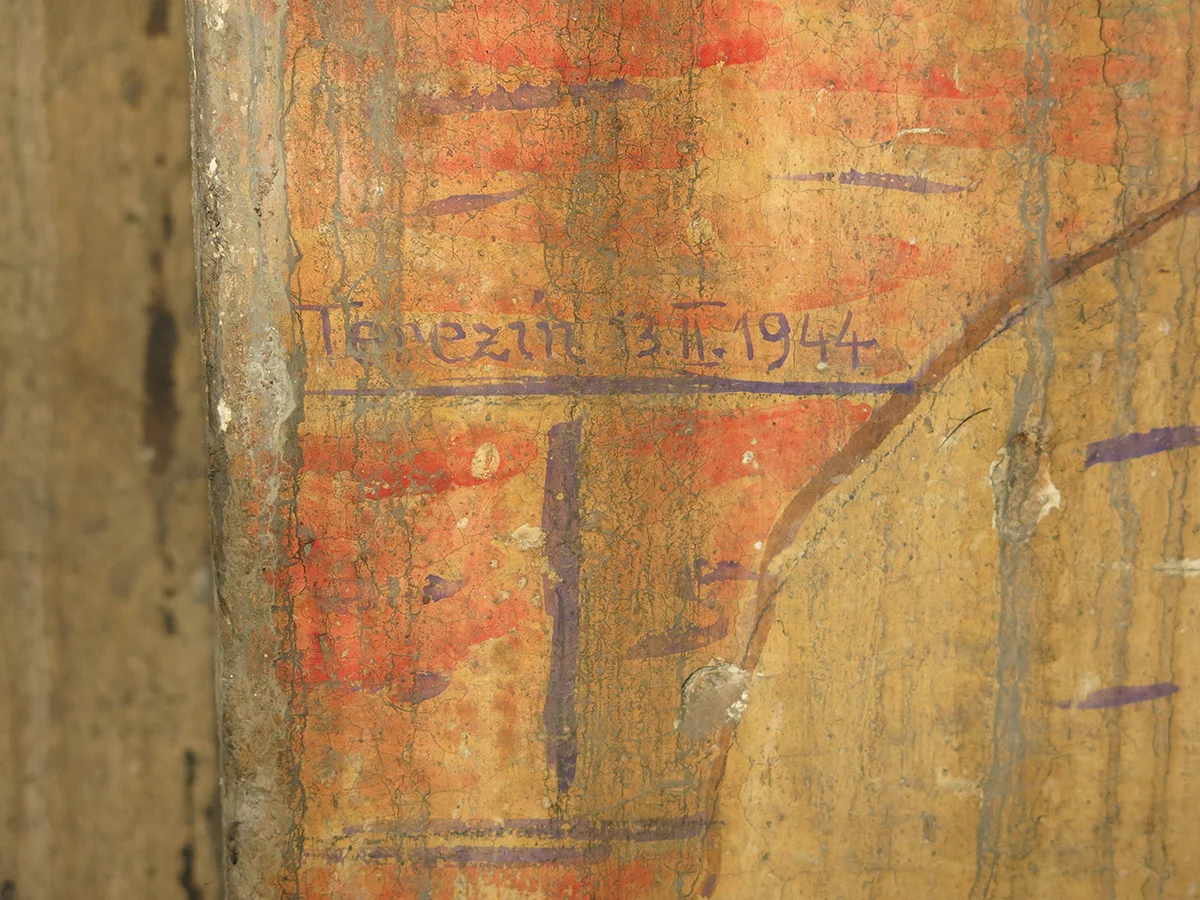 Terezin 13.II.1944